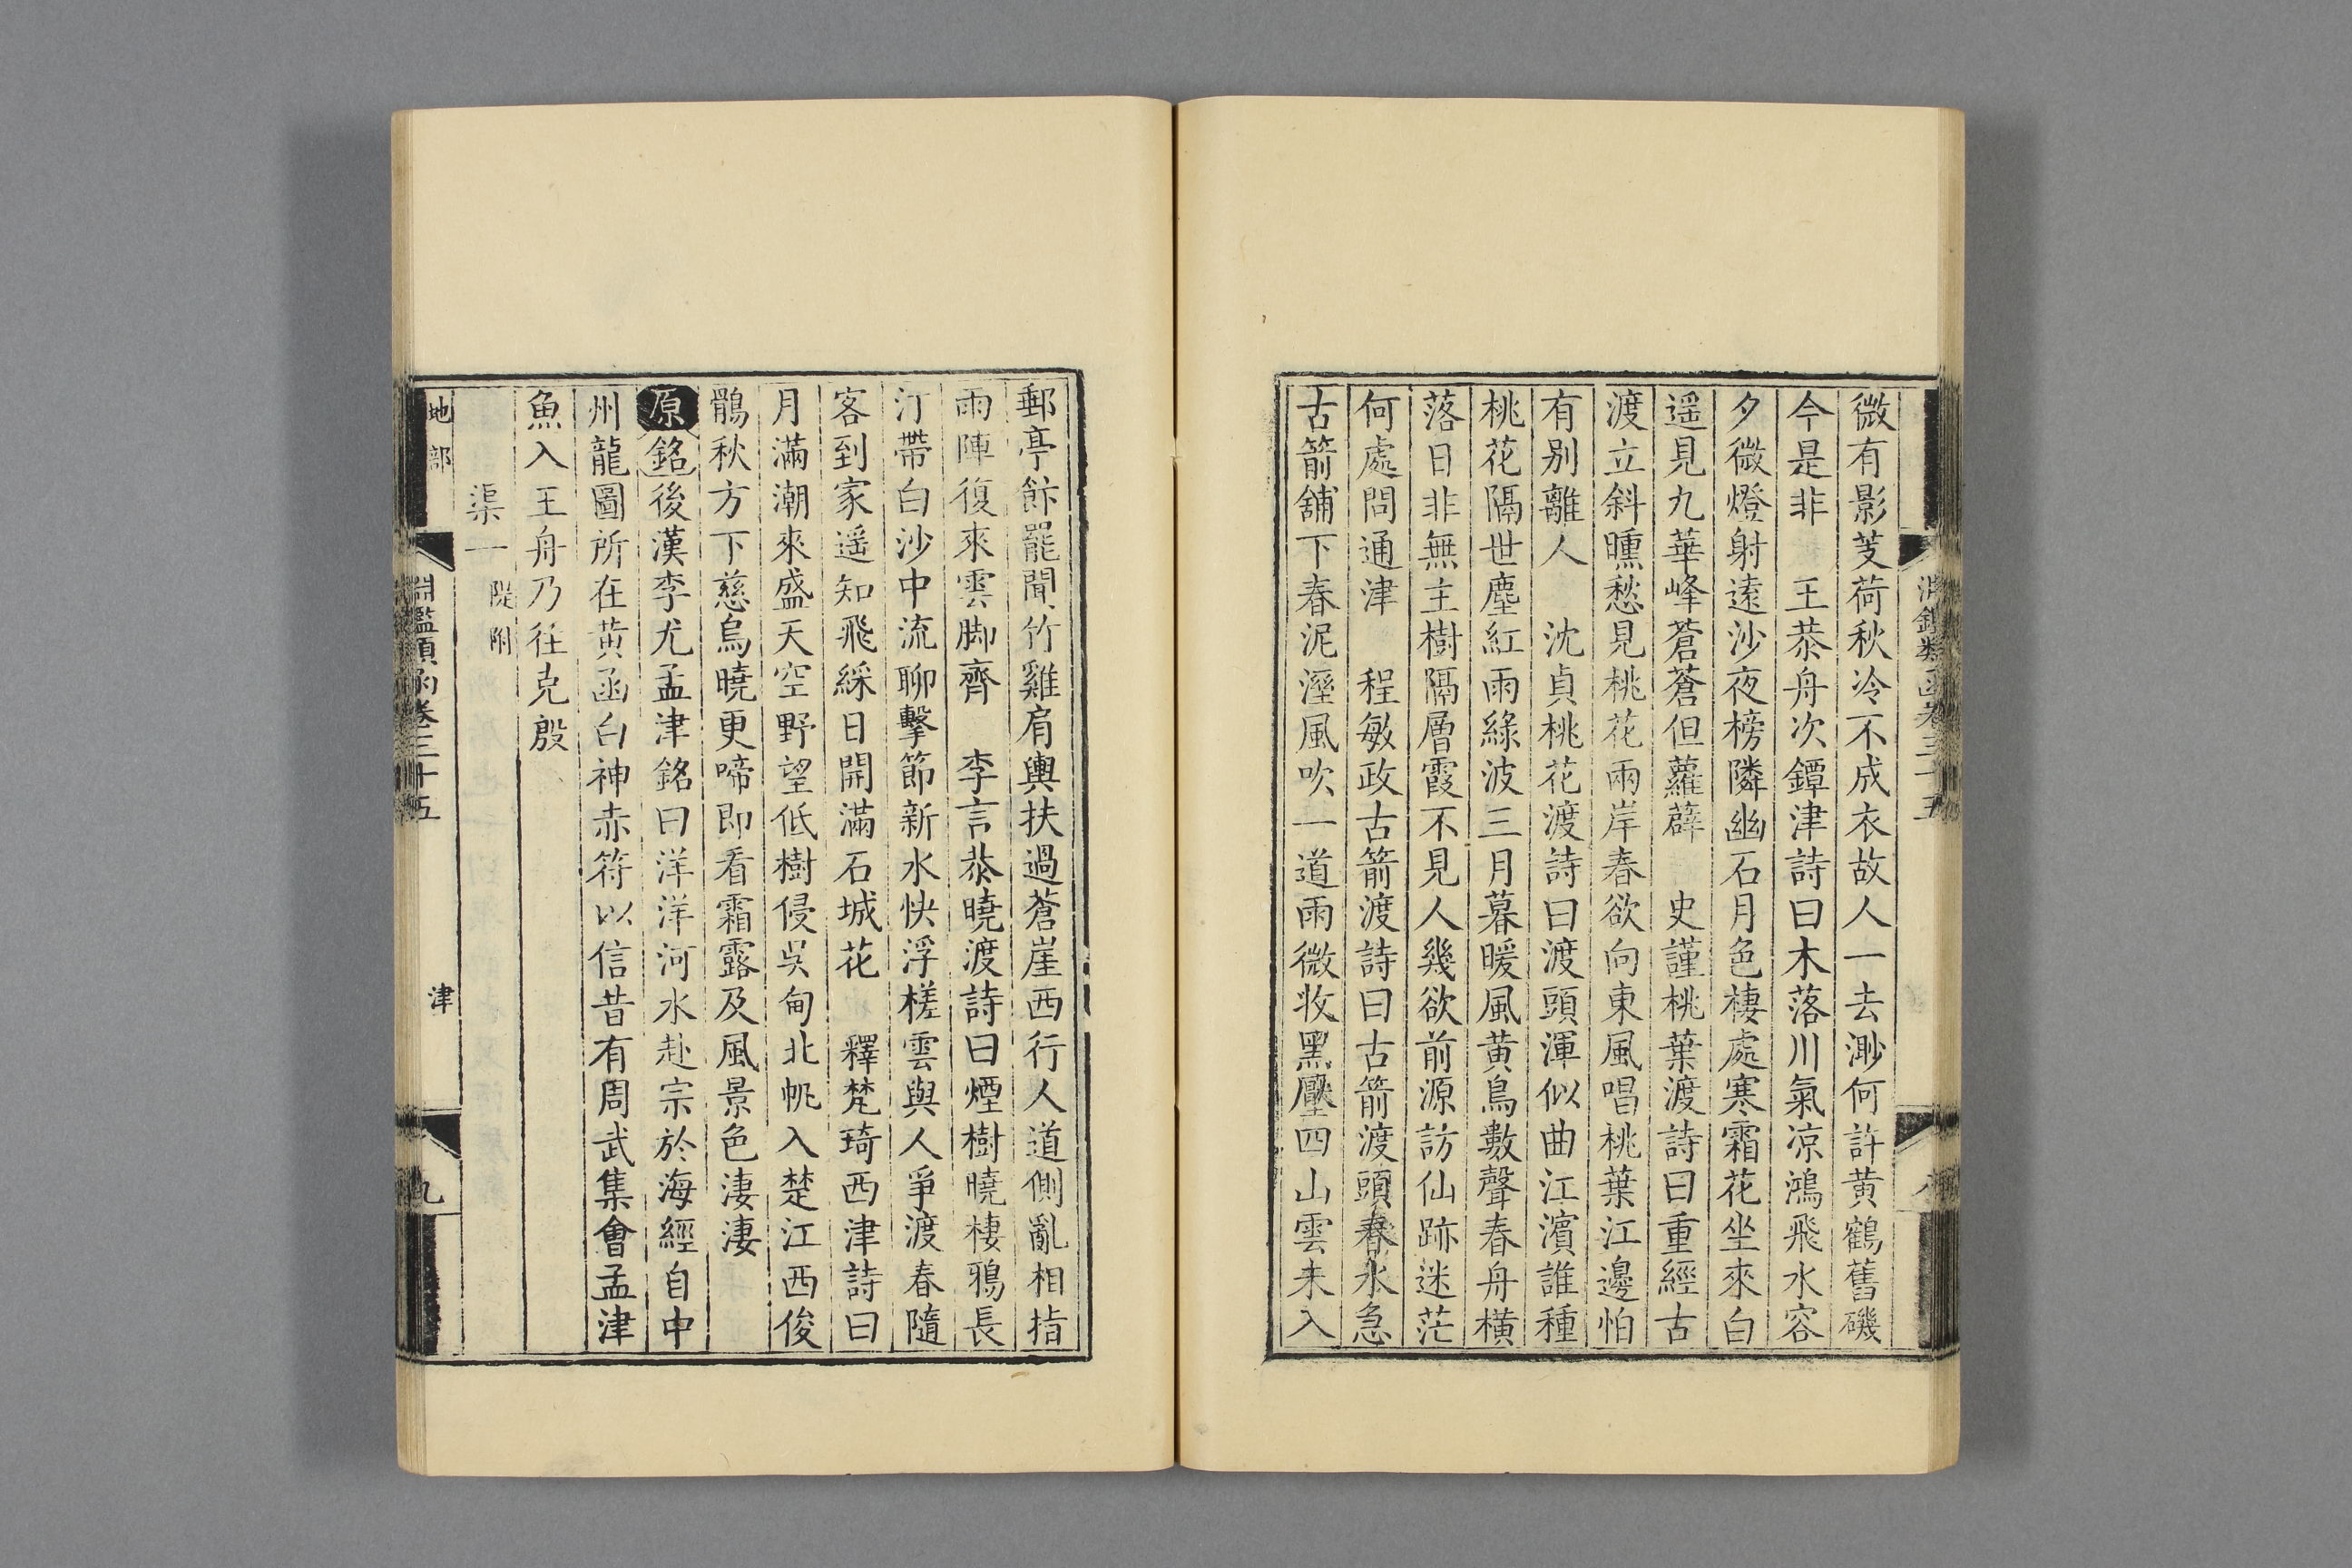 微有影芰荷秋冷不成衣故人一去渺何許黃鶴舊磯
今是非　王恭舟次鐔津詩曰木落川氣凉鴻飛水容
夕微燈射遠沙夜榜隣幽石月色棲處寒霜花坐來白
遥見九華峰蒼蒼但蘿薜　史謹桃葉渡詩曰重經古
渡立斜曛愁見桃花兩岸春欲向東風唱桃葉江邊怕
有别離人　沈貞桃花渡詩曰渡頭渾似曲江濱誰種
桃花隔世塵紅雨綠波三月暮暖風黃鳥數聲春舟橫
落日非無主樹隔層霞不見人幾欲前源訪仙跡迷茫
何處問通津　程敏政古箭渡詩曰古箭渡頭春水急
古箭舖下春泥溼風吹一道雨微收黑壓四山雲未入
郵亭飰罷聞竹雞肩輿扶過蒼崖西行人道側亂相指
雨陣復來雲脚齊　李言恭曉渡詩曰煙樹曉棲鴉長
汀帶白沙中流聊擊節新水快浮槎雲與人爭渡春隨
客到家遥知飛綵日開滿石城花　釋梵琦西津詩曰
月滿潮來盛天空野望低樹侵吳甸北帆入楚江西俊
鶻秋方下慈烏曉更啼即看霜露及風景色淒淒
原銘後漢李尤孟津銘曰洋洋河水赴宗於海經自中
州龍圖所在黃函白神赤符以信昔有周武集會孟津
魚入王舟乃往克殷
渠一 隄附
地部 淵鑑類函卷三十五 津 九